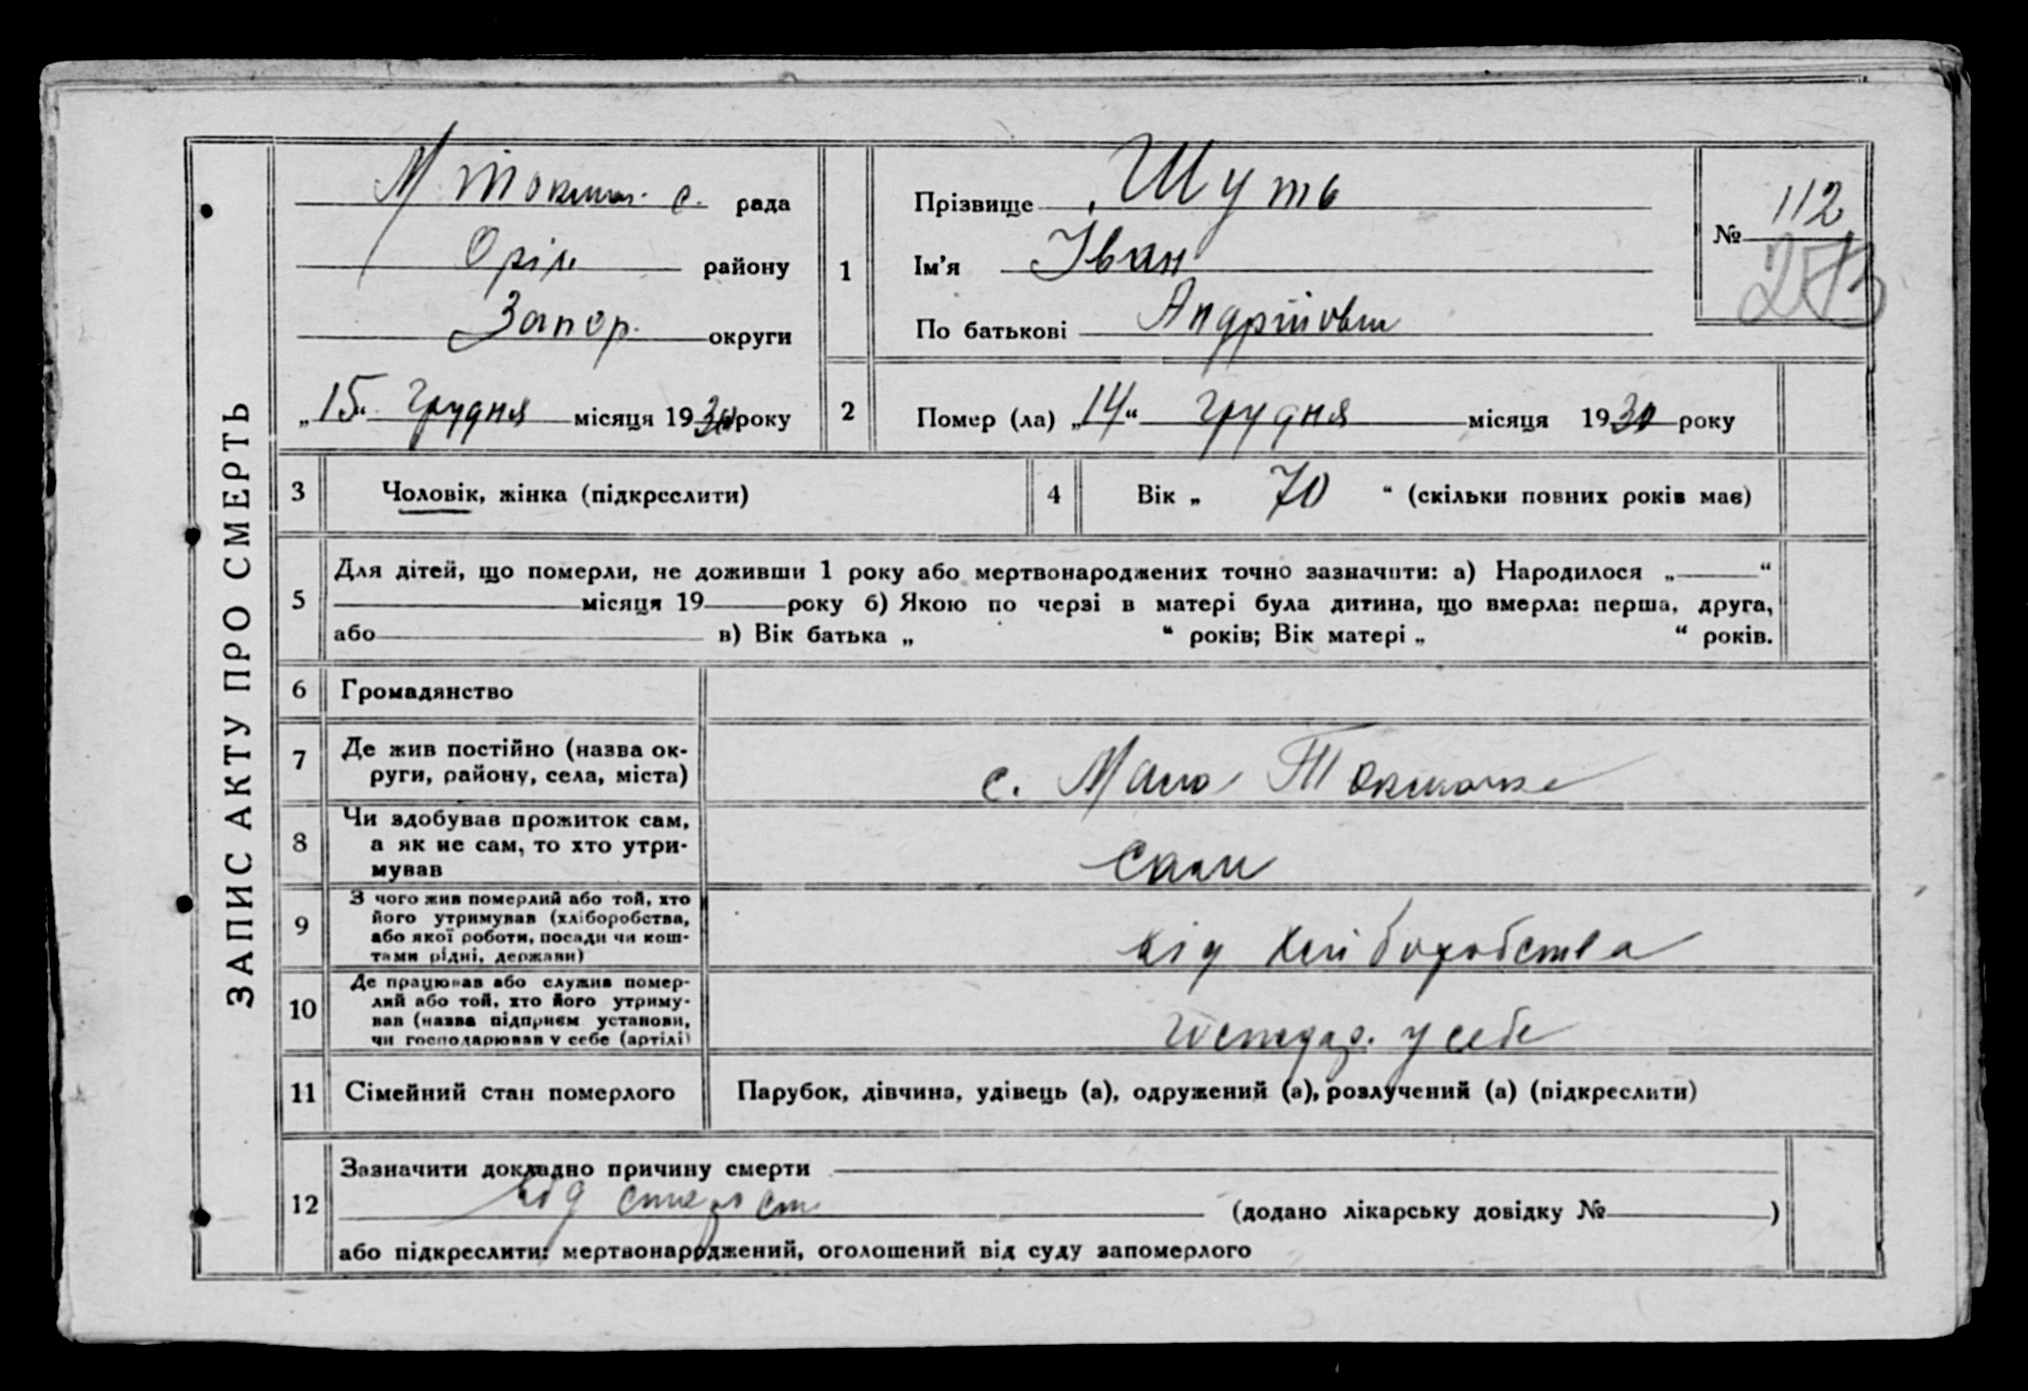 ЗАПИС АКТУ ПРО СМЕРТЬ
М. Токмач. с. рада
Оріх. району
Запор. округи
„15“ грудня місяця 1930 року
1
Прізвище Шуть
Ім’я Іван
По батькові Андрійович
№ 112
2
Помер (ла) „14“ грудня місяця 1930 року
3
Чоловік, жінка (підкреслити)
4
Вік „ 70 “ (скільки повних років має)
5
Для дітей, що померли, не доживши 1 року або мертвонароджених точно зазначити: а) Народилося „ “
місяця 19 року б) Якою по черзі в матері була дитина, що вмерла: перша, друга,
або в) Вік батька „ “ років; Вік матері „ “ років.
6
Громадянство
7
Де жив постійно (назва ок-
руги, району, села, міста)
с. Мала Токмачка
8
Чи здобував прожиток сам,
а як не сам, то хто утри-
мував
сам
9
З чого жив померлий або той, хто
його утримував (хліборобства,
або якої роботи, посади чи кош-
тами рідні, держави)
від хліборобства
10
Де працював або служив помер-
лий або той, хто його утриму-
вав (назва підприєм установи,
чи господарював у себе (артілі)
господар. у себе
11
Сімейний стан померлого
Парубок, дівчина, удівець (а), одружений (а), розлучений (а) (підкреслити)
12
Зазначити докладно причину смерти
від старост
(додано лікарську довідку № )
або підкреслити: мертвонароджений, оголошений від суду запомерлого